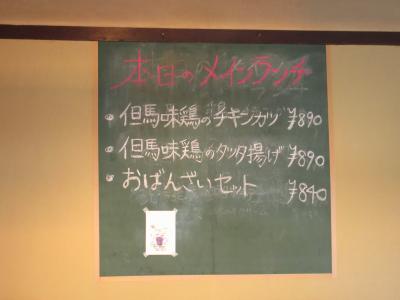 本日のメインランチ
但馬味鶏のチキンカツ ¥890
但馬味鶏のタツタ揚げ ¥890
おばんざいセット ¥840